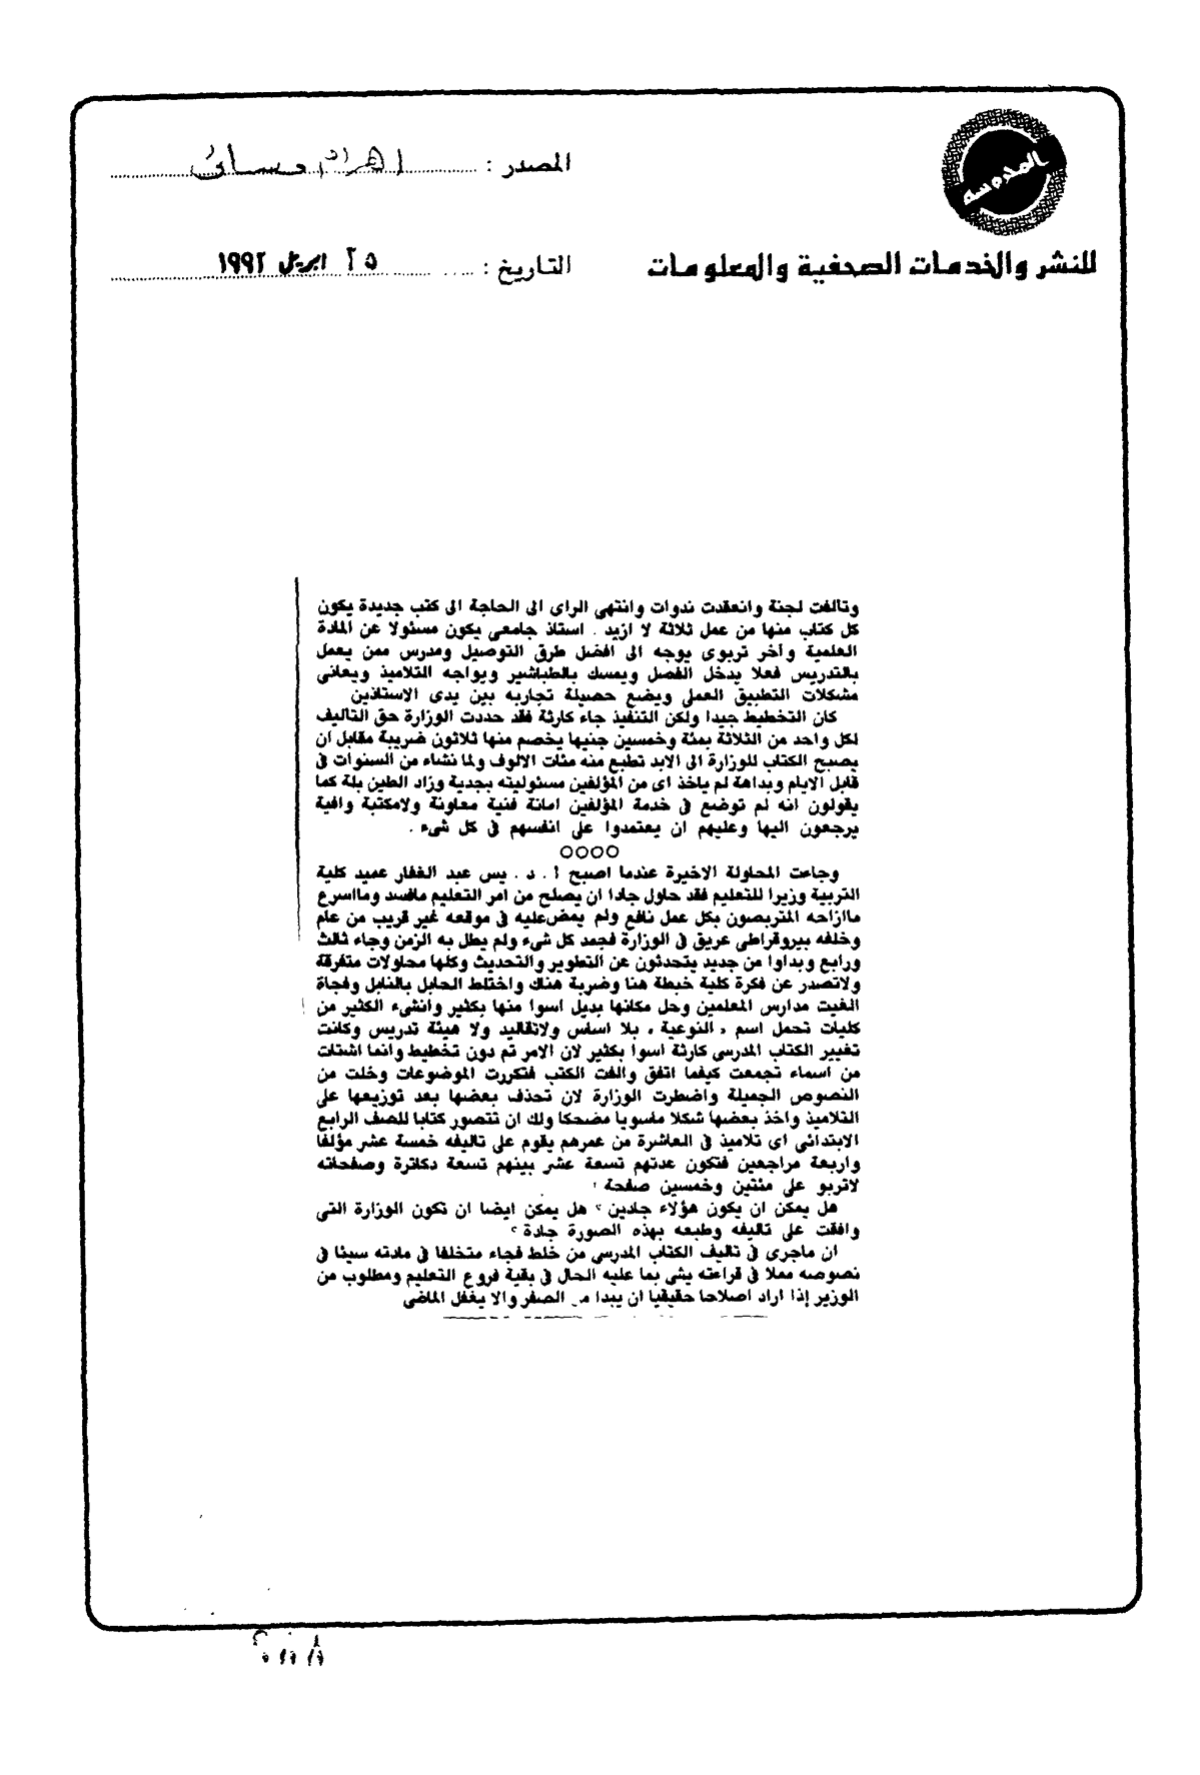 المحروسه
المصدر : اهرام مسائى
للنشر والخدمات الصحفية والمعلومات
التاريخ : ٢٥ ابريل ١٩٩٢
وتالفت لجنة وانعقدت ندوات وانتهى الراى الى الحاجة الى كتب جديدة يكون
كل كتاب منها من عمل ثلاثة لا ازيد . استاذ جامعى يكون مسئولا عن المادة
العلمية وآخر تربوى يوجه الى افضل طرق التوصيل ومدرس ممن يعمل
بالتدريس فعلا يدخل الفصل ويمسك بالطباشير ويواجه التلاميذ ويعانى
مشكلات التطبيق العملى ويضع حصيلة تجاربه بين يدى الاستاذين
كان التخطيط جيدا ولكن التنفيذ جاء كارثة فقد حددت الوزارة حق التاليف
لكل واحد من الثلاثة بمئة وخمسين جنيها يخصم منها ثلاثون ضريبة مقابل ان
يصبح الكتاب للوزارة الى الابد تطبع منه مئات الالوف ولما نشاء من السنوات فى
قابل الايام وبداهة لم ياخذ اى من المؤلفين مسئوليته بجدية وزاد الطين بلة كما
يقولون انه لم توضع فى خدمة المؤلفين امانة فنية معاونة ولامكتبة وافية
يرجعون اليها وعليهم ان يعتمدوا على انفسهم فى كل شىء .
○○○○
وجاءت المحاولة الاخيرة عندما اصبح أ . د . يس عبد الغفار عميد كلية
التربية وزيرا للتعليم فقد حاول جادا ان يصلح من امر التعليم مافسد ومااسرع
ماازاحه المتربصون بكل عمل نافع ولم يمض عليه فى موقعه غير قريب من عام
وخلفه بيروقراطى عريق فى الوزارة فجمد كل شىء ولم يطل به الزمن وجاء ثالث
ورابع وبداوا من جديد يتحدثون عن التطوير والتحديث وكلها محاولات متفرقة
ولاتصدر عن فكرة كلية خبطة هنا وضربة هناك واختلط الحابل بالنابل وفجاة
الغيت مدارس المعلمين وحل مكانها بديل اسوا منها بكثير وانشىء الكثير من
كليات تحمل اسم « النوعية » بلا اساس ولاتقاليد ولا هيئة تدريس وكانت
تغيير الكتاب المدرسى كارثة اسوا بكثير لان الامر تم دون تخطيط وانما اشتات
من اسماء تجمعت كيفما اتفق والفت الكتب فتكررت الموضوعات وخلت من
النصوص الجميلة واضطرت الوزارة لان تحذف بعضها بعد توزيعها على
التلاميذ واخذ بعضها شكلا ماسويا مضحكا ولك ان تتصور كتابا للصف الرابع
الابتدائى اى تلاميذ فى العاشرة من عمرهم يقوم على تاليفه خمسة عشر مؤلفا
واربعة مراجعين فتكون عدتهم تسعة عشر بينهم تسعة دكاترة وصفحاته
لاتربو على مئتين وخمسين صفحة !
هل يمكن ان يكون هؤلاء جادين ؟ هل يمكن ايضا ان تكون الوزارة التى
وافقت على تاليفه وطبعه بهذه الصورة جادة ؟
ان ماجرى فى تاليف الكتاب المدرسى من خلط فجاء متخلفا فى مادته سيئا فى
نصوصه مملا فى قراءته يشى بما عليه الحال فى بقية فروع التعليم ومطلوب من
الوزير إذا اراد اصلاحا حقيقيا ان يبدا من الصفر والا يغفل الماضى